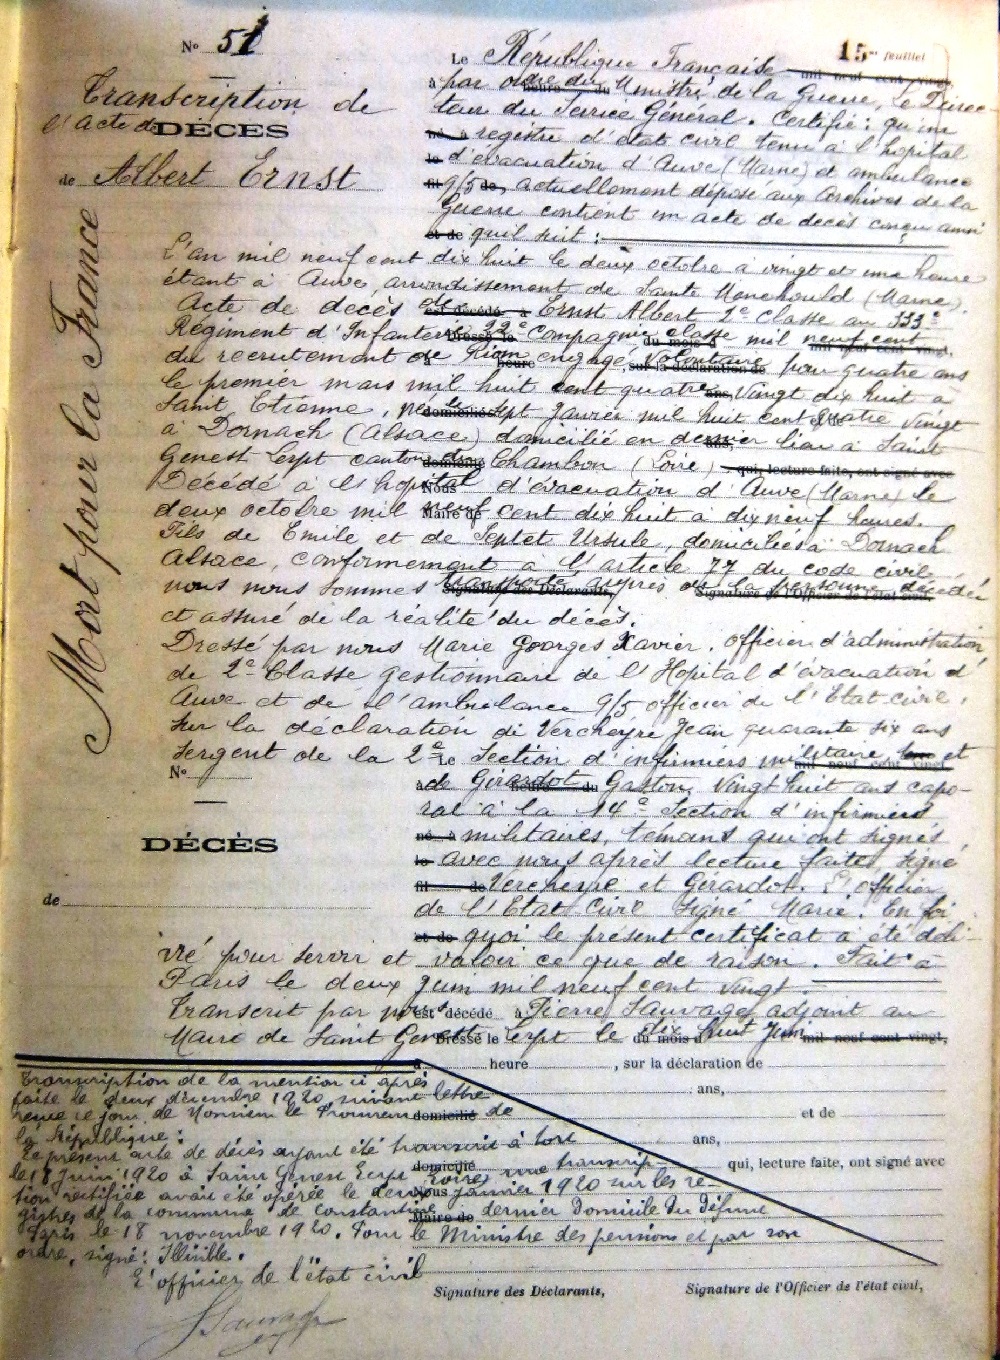 N° 51
15me feuillet
Transcription de
l'acte de DÉCÈS
de Albert Ernst
Mort pour la France
Le République Française mil neuf cent vingt
à par ordre du Ministre de la Guerre, Le Direc
teur du Service Général. Certifie: qu'un
né à registre d'état civil tenu à l'hopital
le d'évacuation d'Auve (Marne) et ambulance
fil 9/5 de, actuellement déposé aux archives de la
Guerre contient un acte de décès conçu ainsi
et de qu'il suit :
L'an mil neuf cent dix huit le deux octobre à vingt et une heure
étant à Auve, arrondissement de Sainte Menehould (Marne)
Acte de décès de est décédé à Ernst Albert 2e classe au 333e
Régiment d'Infanterie Dressé le 22e Compagnie du mois d classe mil neuf cent mil neuf cent vingt,
du recrutement de Riom heure engagé volontaire sur la déclaration de pour quatre ans
le premier mars mil huit cent quatre ans, vingt dix huit à
Saint Etienne, né le domicilié sept janvier mil huit cent quatre vingt
à Dornach (Alsace) domicilié en dernier ans, lieu à Saint
Genest Lerpt canton du domicilié Chambon (Loire) qui, lecture faite, ont signé avec
Décédé à l'hopital Nous d'évacuation d'Auve (Marne) le
deux octobre mil neuf Maire de cent dix huit à dix neuf heures.
Fils de Emile et de Septet Ursule, domiciliés à Dornach
Alsace, conformement à l'article 77 du code civil
nous nous sommes transporté Signature des Déclarants, auprès de la personne Signature de l'Officier de l'état civil, décédée
et assuré de la réalité du décès.
Dressé par nous Marie Georges Xavier, officier d'administration
de 2e Classe gestionnaire de l'Hopital d'évacuation d'
Auve et de l'ambulance 9/5 officier de l'Etat-civil,
sur la déclaration de Vercheyre Jean quarante six ans
sergent de la 2e Le Section d'infirmiers militaire mil neuf cent vingt et
N°
à de Gérardot heure du Gaston, vingt huit ans capo-
ral à la 14e Section d'infirmiers
né à militaires, témoins qui ont signés
le avec nous après lecture faite, signé
fil de Vercheyre et Gérardot. L'officier
de l'Etat Civil signé Marie. En foi
et de quoi le présent certificat a été déli-
DÉCÈS
de
vré pour servir et valoir ce que de raison. Fait à
Paris le deux juin mil neuf cent vingt.
Transcrit par nous est décédé à Pierre Sauvage adjoint au
Maire de Saint Genest Dressé le Lerpt le du mois d dix huit Juin mil neuf cent vingt,
à heure , sur la déclaration de
ans,
domicilié et de
ans,
domicilié qui, lecture faite, ont signé avec
Nous
Maire de
Transcription de la mention ci après
faite le deux décembre 1920, suivant lettre
même ce jour de Monsieur le Procureur de
la République:
Le présent acte de décès ayant été transcrit à tort
le 18 Juin 1920 à Saint Genest Lerpt (Loire) une transcrip-
tion rectifiée avait été opérée le deux janvier 1920 sur les re-
gistres de la commune de Constantine dernier domicile du défunt
Paris le 18 novembre 1920. Pour le Ministre des pensions et par son
ordre, signé: Illisible.
L'officier de l'état civil
Sauvage
Signature des Déclarants,
Signature de l'Officier de l'état civil,